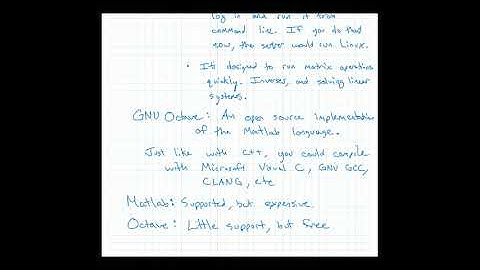 log in and run it from
command line. If you do that
now, the server would run Linux.
• It's designed to run matrix operations
quickly. Inverses, and solving linear
systems.
GNU Octave: An open source implementation
of the Matlab language.
Just like with C++, you could compile
with Microsoft Visual C, GNU GCC,
CLANG, etc
Matlab: Supported, but expensive.
Octave: Little support, but free